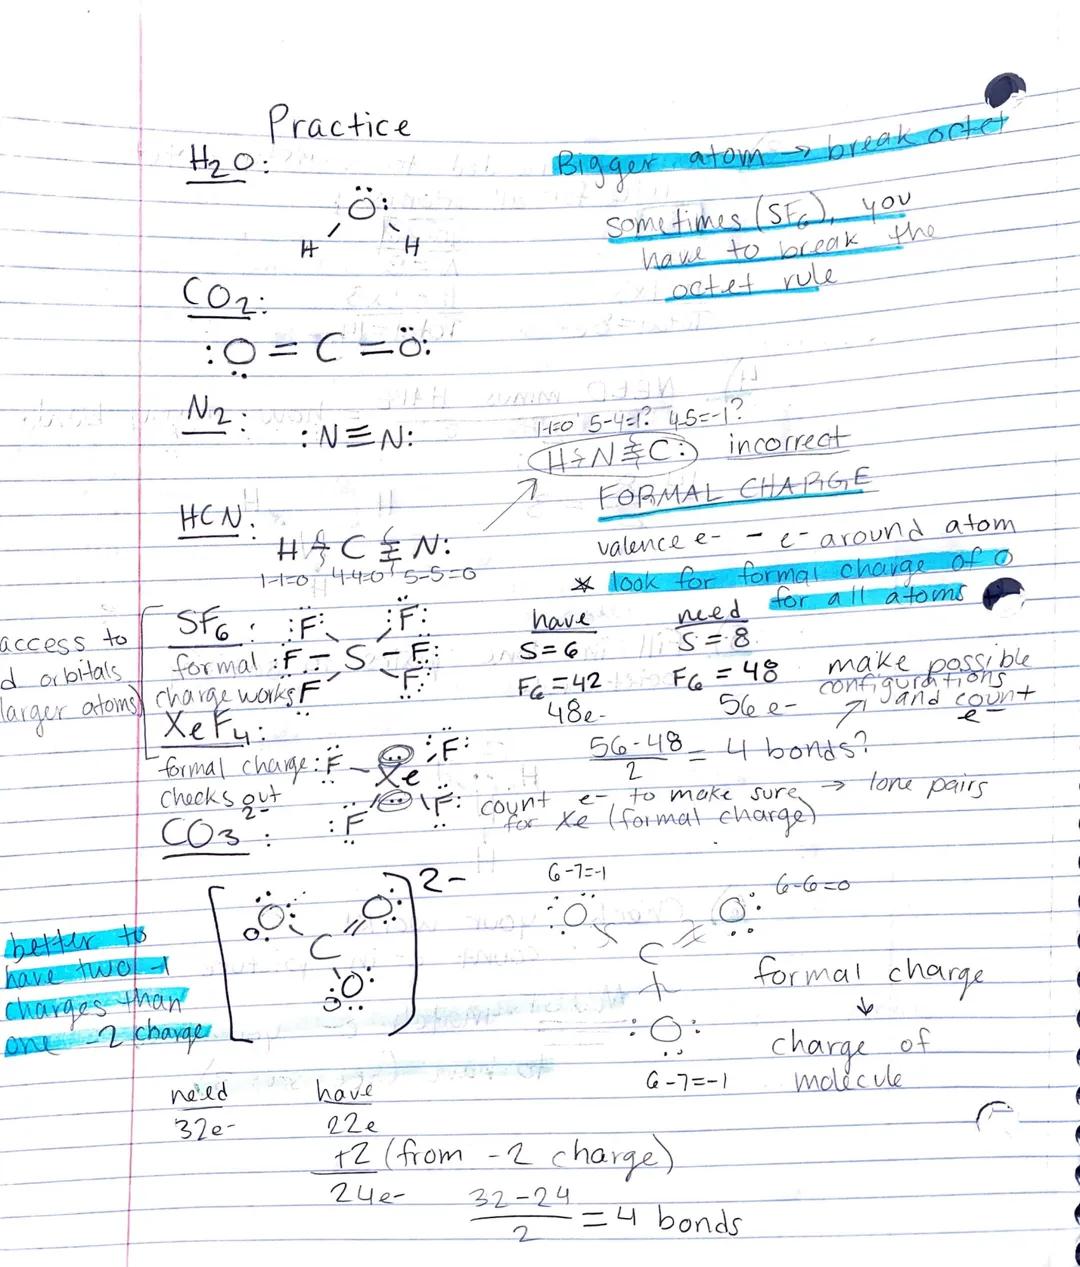 Practice
H2O:
Bigger atom → break octet
sometimes (SF6), you
have to break the
octet rule
H Ö: H
CO2:
:O = C = Ö:
N2:
:N≡N:
1-1=0 5-4=1? 4-5=-1?
H-N≡C: incorrect
FORMAL CHARGE
valence e- - e- around atom
* look for formal charge of 0
for all atoms
HCN:
H-C≡N:
1-1=0 4-4=0 5-5=0
access to
d orbitals
(larger atoms)
SF6:
formal
charge works
:F: :F:
:F - S - F:
F F
have need
S=6 S=8
F6=42 F6=48
48e- 56e-
make possible
configurations
and count
e-
56-48/2 = 4 bonds?
XeF4:
formal charge
checks out
:F - Xe :F:
:F F:
count e- to make sure → lone pairs
for Xe (formal charge)
CO3 2-:
[:O: C O: :O:] 2-
better to
have two -1
charges than
one -2 charge
6-7=-1
6-6=0
:O: O:
C
:O:
6-7=-1
formal charge
↓
charge of
molecule
need have
32e- 22e
+2 (from -2 charge)
24e-
32-24/2 = 4 bonds